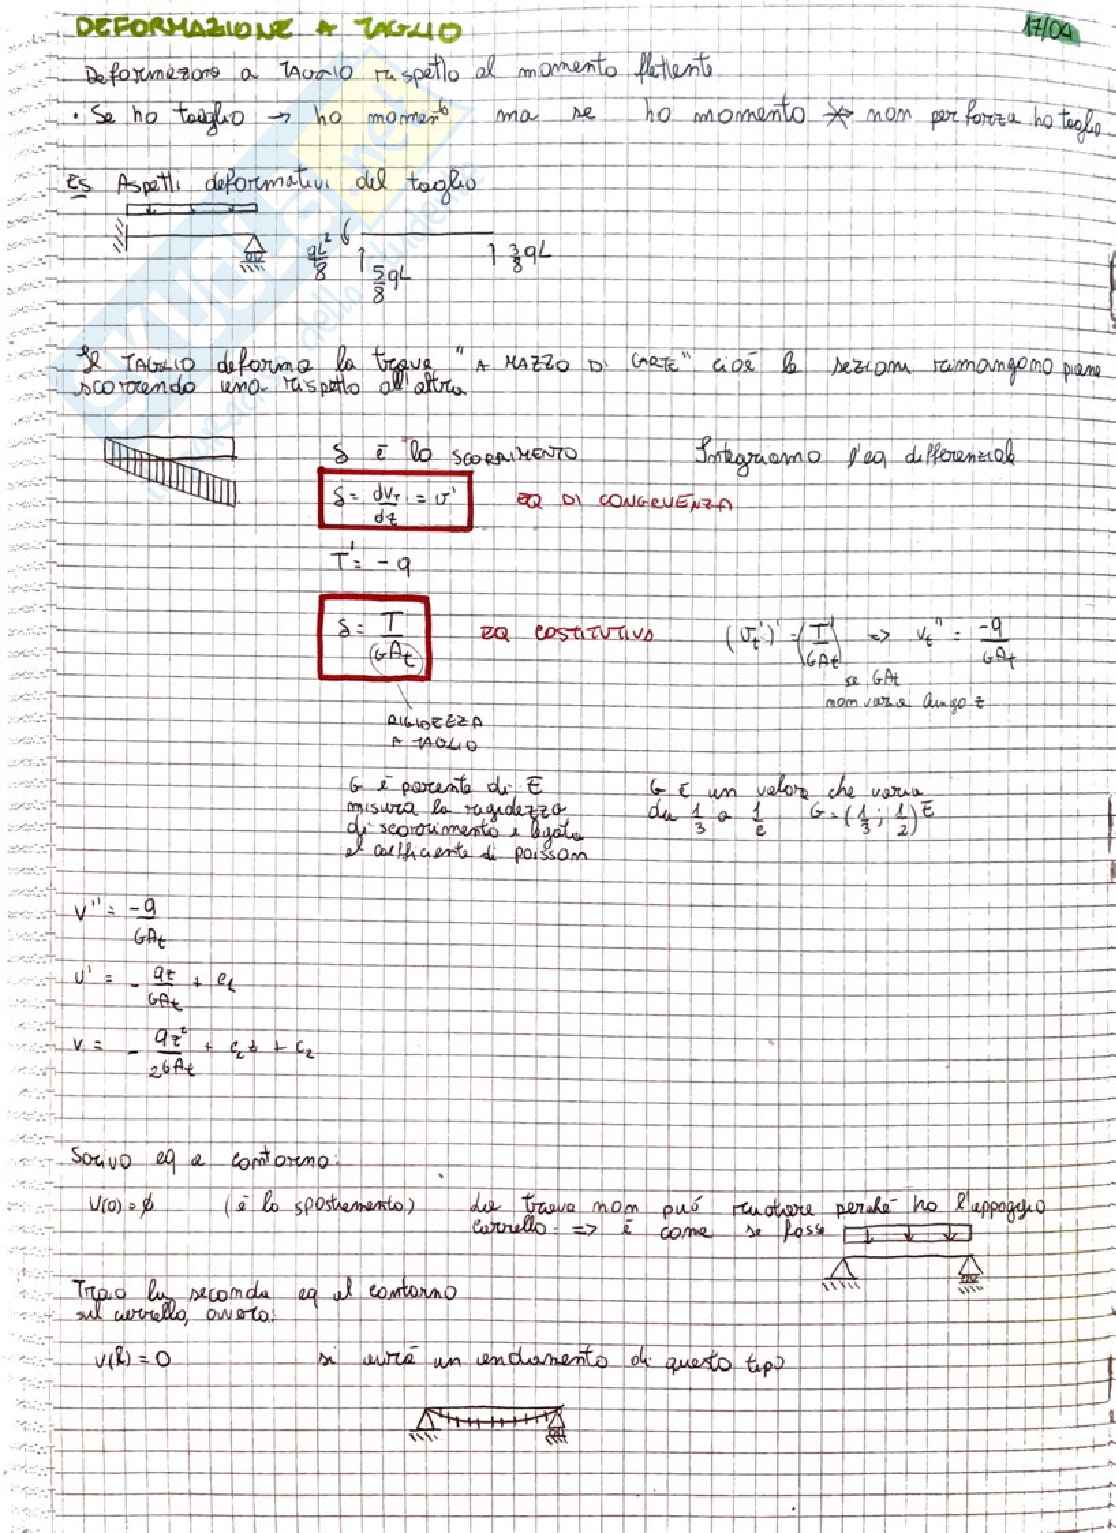 DEFORMAZIONE A TAGLIO
17/04
Deformazione a TAGLIO rispetto al momento flettente
• Se ho taglio → ho momento ma se ho momento non per forza ho taglio
Es Aspetti deformativi del taglio
qL²/8 5/8 qL 3/8 qL
Il TAGLIO deforma la trave "A MAZZO DI CARTE" cioè le sezioni rimangono piane
scorrendo una rispetto all'altra
δ è lo SCORRIMENTO Integriamo l'eq differenziale
δ = dv_T/dz = v' EQ DI CONGRUENZA
T' = -q
δ = T/GA_t EQ COSTITUTIVA (v_t')' = (T/GA_t)' => v_t'' = -q/GA_t
se GAt
non varia lungo z
RIGIDEZZA
A TAGLIO
G è parente di E
misura la rigidezza
di scorrimento e legata
al coefficiente di poisson
G è un valore che varia
da 1/3 a 1/2 G = (1/3 ; 1/2) E
v'' = -q/GA_t
v' = - qz/GA_t + c₁
v = - qz²/2GA_t + c₁z + c₂
Scrivo eq a contorno:
v(0) = ∅ (è lo spostamento) la trave non può ruotare perché ho l'appoggio
carrello => è come se fosse
Trovo la seconda eq al contorno
sul carrello, ovvero:
v(l) = 0 si avrà un andamento di questo tipo